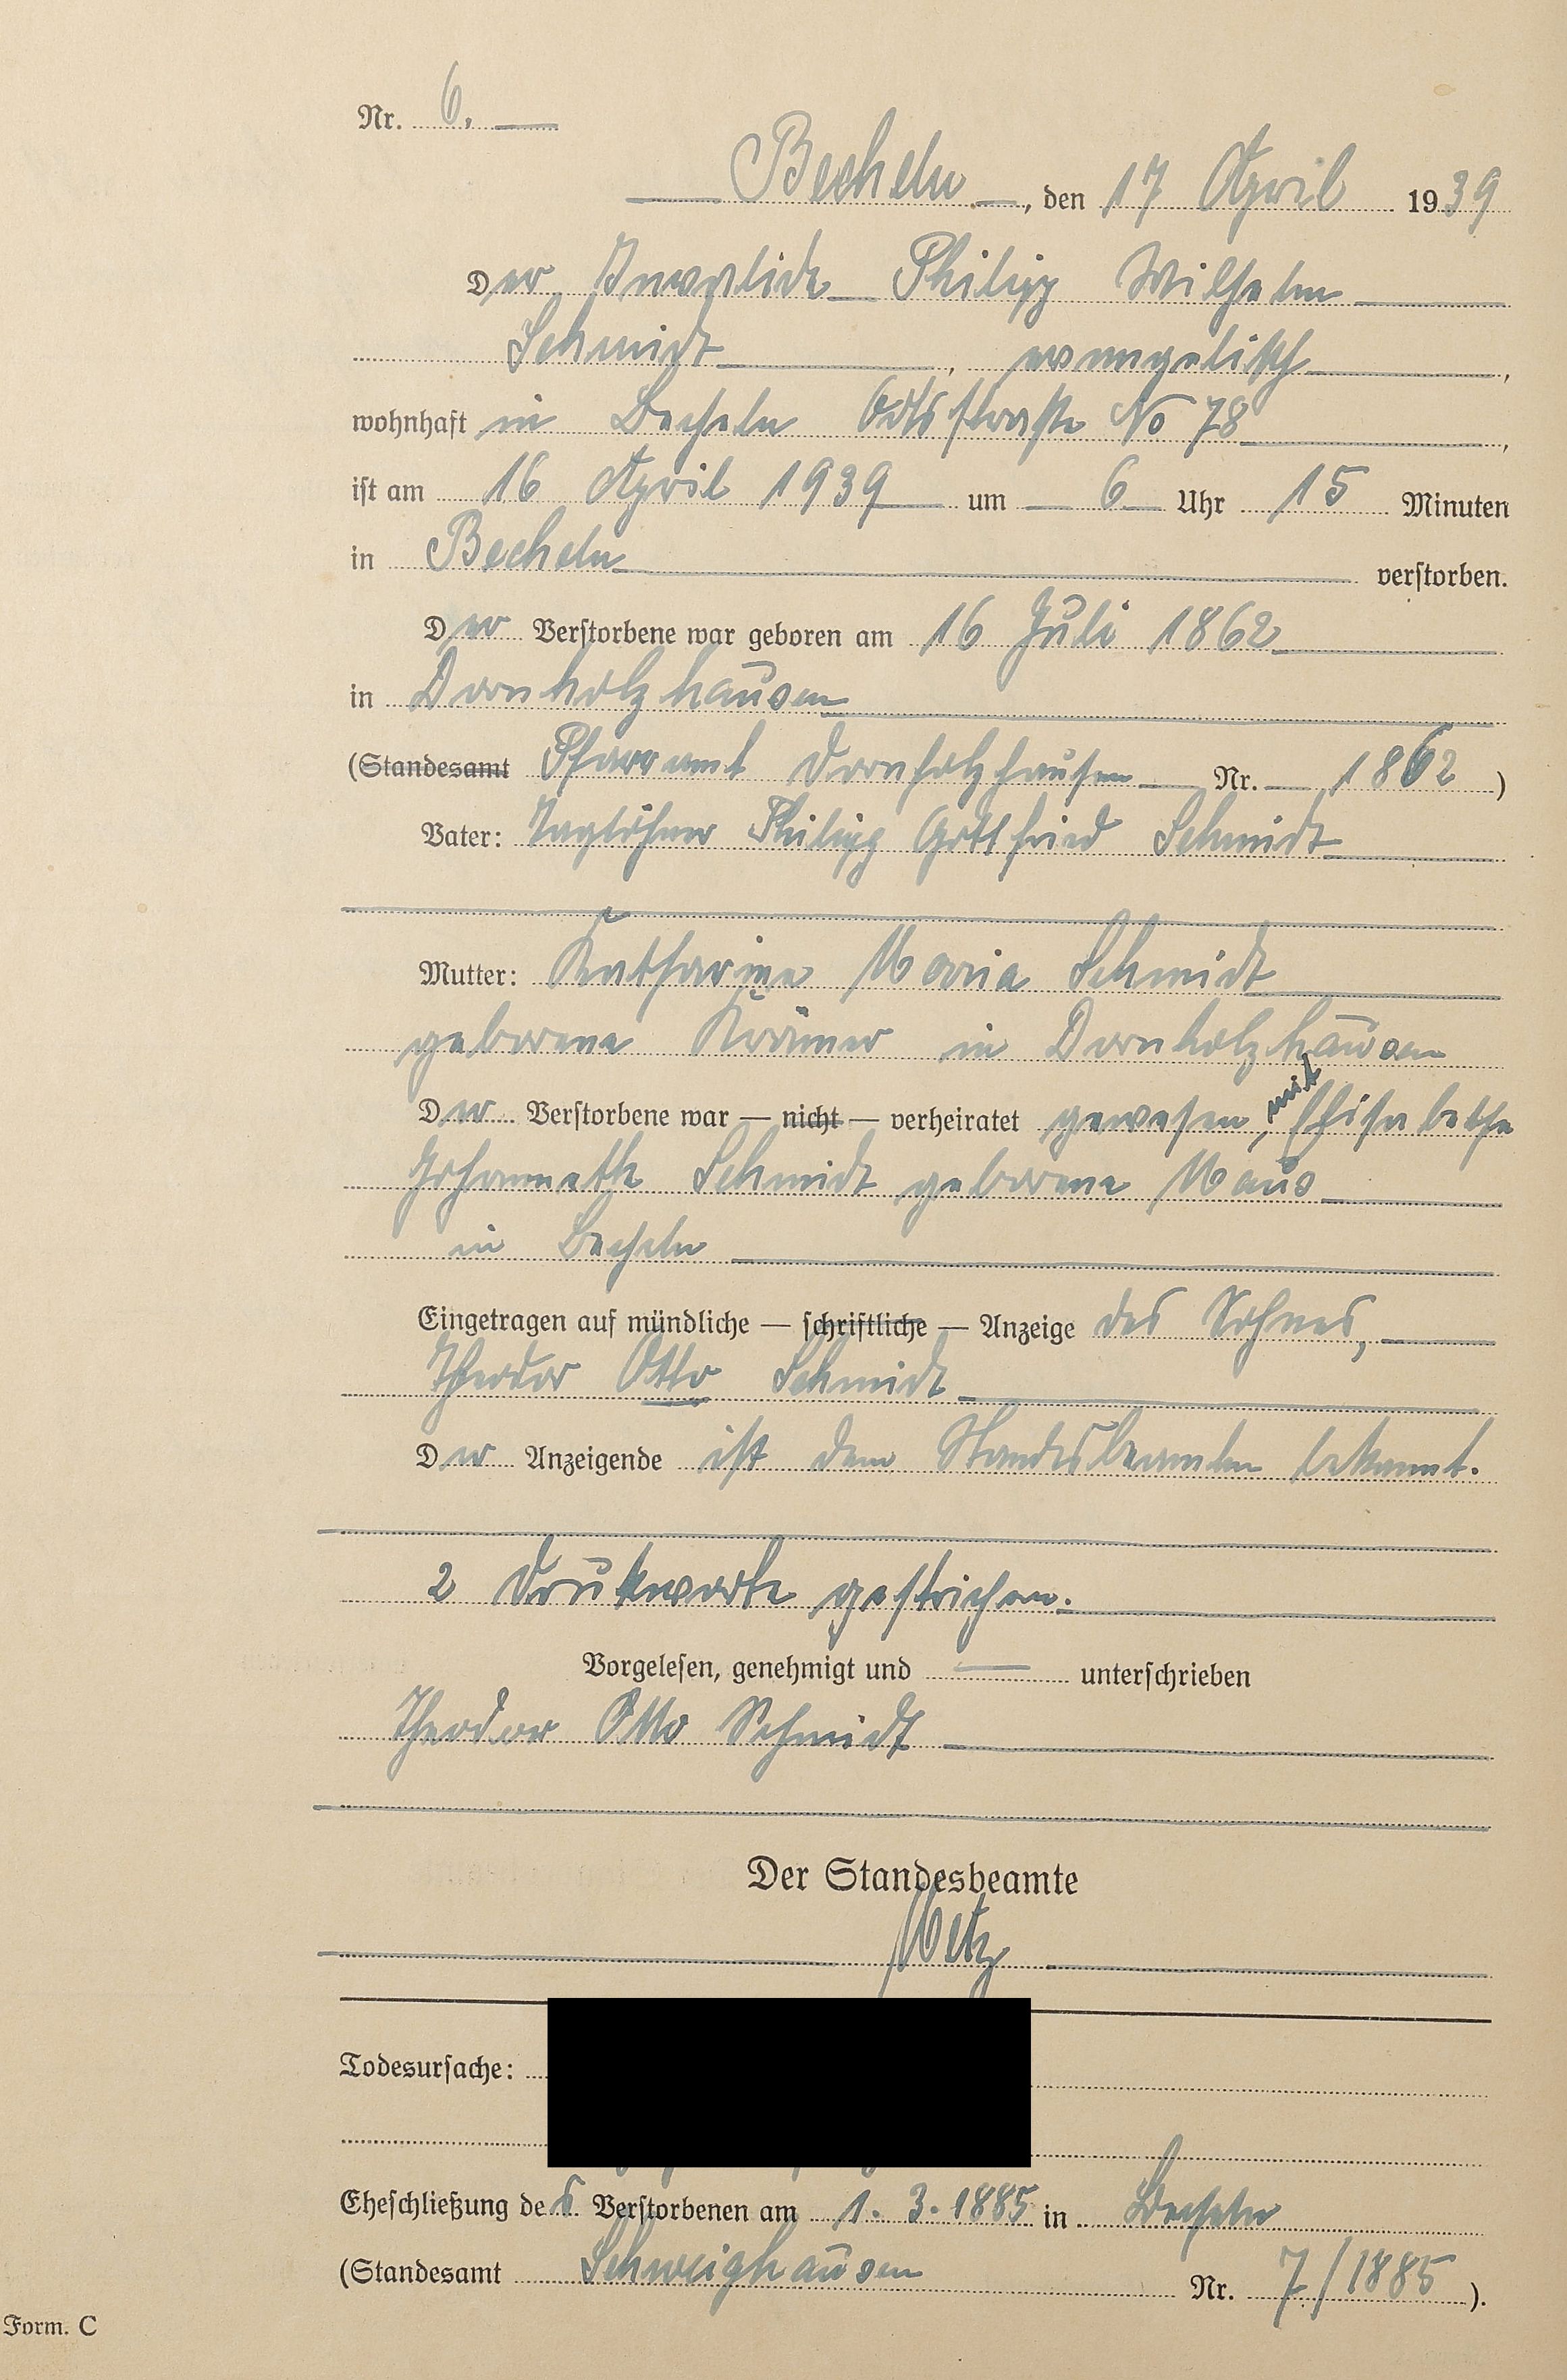 Nr. 6.
Becheln, den 17 April 1939
Der Invalide Philipp Wilhelm
Schmidt, evangelisch,
wohnhaft in Becheln Ortsstraße No 78,
ist am 16 April 1939 um 6 Uhr 15 Minuten
in Becheln verstorben.
Der Verstorbene war geboren am 16 Juli 1862
in Dornholzhausen
(Standesamt Pfarramt Dornholzhausen Nr. 1862)
Vater: Taglöhner Philipp Gottfried Schmidt
Mutter: Katharine Maria Schmidt
geborene Krämer in Dornholzhausen
Der Verstorbene war — nicht — verheiratet gewesen, mit Elisabethe
Johannette Schmidt geborene Maus
in Becheln
Eingetragen auf mündliche — schriftliche — Anzeige des Sohnes,
Theodor Otto Schmidt
Der Anzeigende ist dem Standesbeamten bekannt.
2 Druckworte gestrichen.
Vorgelesen, genehmigt und unterschrieben
Theodor Otto Schmidt
Der Standesbeamte
Metz
Todesursache:
Eheschließung des Verstorbenen am 1. 3. 1885 in Becheln
(Standesamt Schweighausen Nr. 7/1885).
Form. C